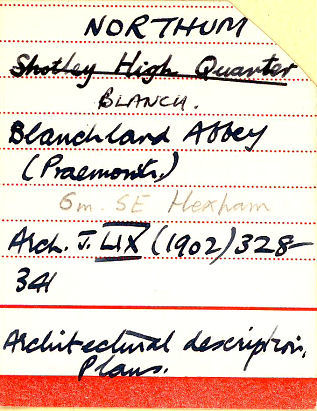 NORTHUM
Shotley High Quarter
BLANCH.
Blanchland Abbey
(Praemonstr.)
6m. SE Hexham
Arch. J. LIX (1902) 328–
341
Architectural description,
Plans.